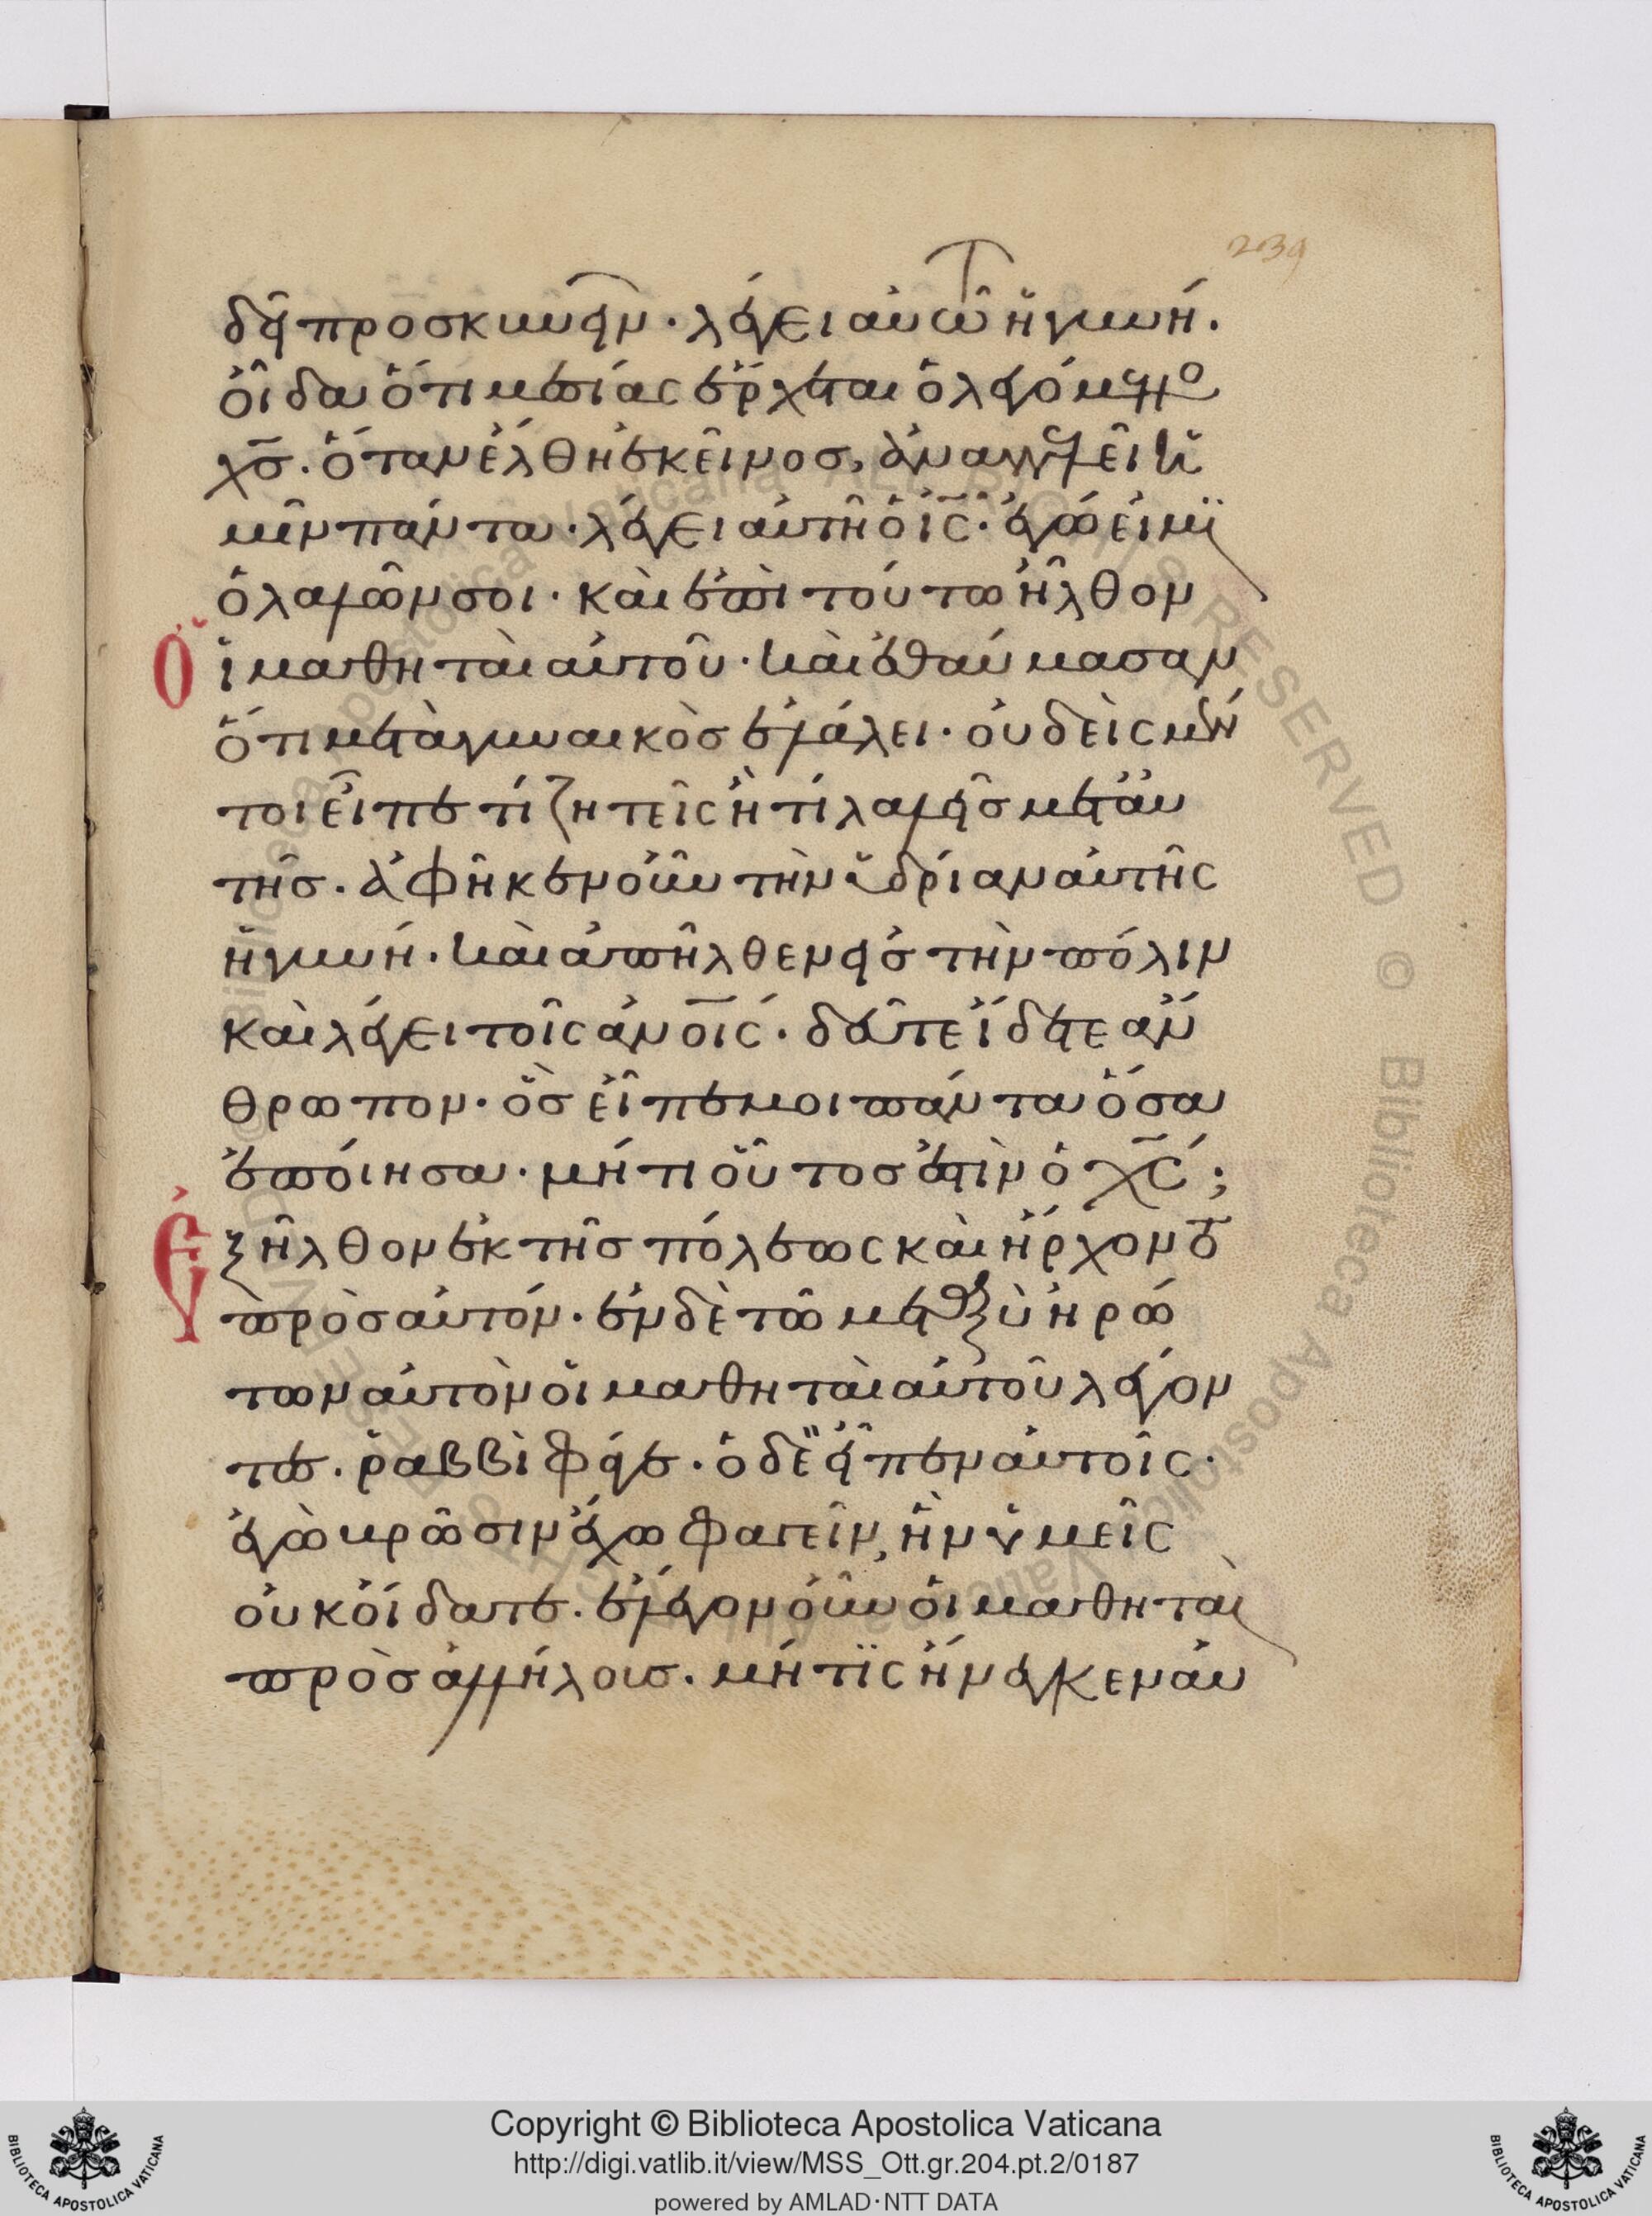 239
δεῖ προσκυνεῖν· λέγει αὐτῶ ἡ γυνή·
οἶδα ὅτι μεσίας ἔρχεται ὁ λεγόμενο
χσ̄· ὅταν ἔλθη ἐκεῖνος, ἀναγγελεῖ ἡ
μῖν πάντα· λέγει αὐτῆ ὁ ισ̄· ἐγώ εἰμϊ
ὁ λαλῶν σοι· καὶ ἐπὶ τούτω ἦλθον
οἱ μαθηταὶ αὐτοῦ· καὶ ἐθαύμασαν
ὅτι μετὰ γυναικὸς ἐλάλει· οὐδεὶς μέν
τοι εἶπε τί ζητεῖς ἢ τί λαλεῖς μετ' αὐ
τῆς· ἀφῆκεν οὖν τὴν ὑδρίαν αὐτῆς
ἡ γυνή· καὶ ἀπῆλθεν εἰς τὴν πόλιν
καὶ λέγει τοῖς ἀν̄οις· δεῦτε ἴδετε ἄν
θρωπον· ὃς εἶπε μοι πάντα ὅσα
ἐποίησα· μήτι οὗτος ἐστὶν ὁ χσ̄;
Ἐξῆλθον ἐκ τῆς πόλεως καὶ ἤρχοντο
πρὸς αὐτόν· ἐν δὲ τῶ μεταξὺ ἠρώ
των αὐτὸν οἱ μαθηταὶ αὐτοῦ λέγον
τες· ῥαββὶ φάγε· ὁ δὲ εἶπεν αὐτοῖς·
ἐγὼ βρῶσιν ἔχω φαγεῖν, ἣν ὑμεῖς
οὐκ οἴδατε· ἔλεγον οὖν οἱ μαθηταὶ
πρὸς ἀλλήλους· μή τϊς ἤνεγκεν αὐ
Copyright © Biblioteca Apostolica Vaticana
http://digi.vatlib.it/view/MSS_Ott.gr.204.pt.2/0187
powered by AMLAD·NTT DATA